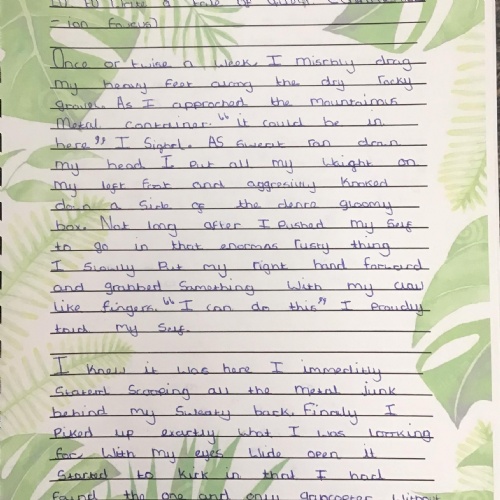 to write a tale
- ion focus)
Once or twise a week. I misrbly drag
my heavy feet along the dry rocky
grouve. As I approched the mountainus
Metal container. "it could be in
here" I sighel. AS swerit ran down
my head I Put all my Wright on
my left foot and aggresivly knoked
down a side of the denre gloomy
box. Not long after I Pushed my self
to go in that enormas rusty thing
I slowly Put my right hand forward
and grabbed something with my claw
like fingers. "I can do this" I Proudly
told my self.
I knew it was here I immeditly
started scooping all the metal junk
behind my sweaty back. Finaly I
Piked up exactly what I was loorking
for. With my eyes wide open it
started to kick in that I had
found the one and only